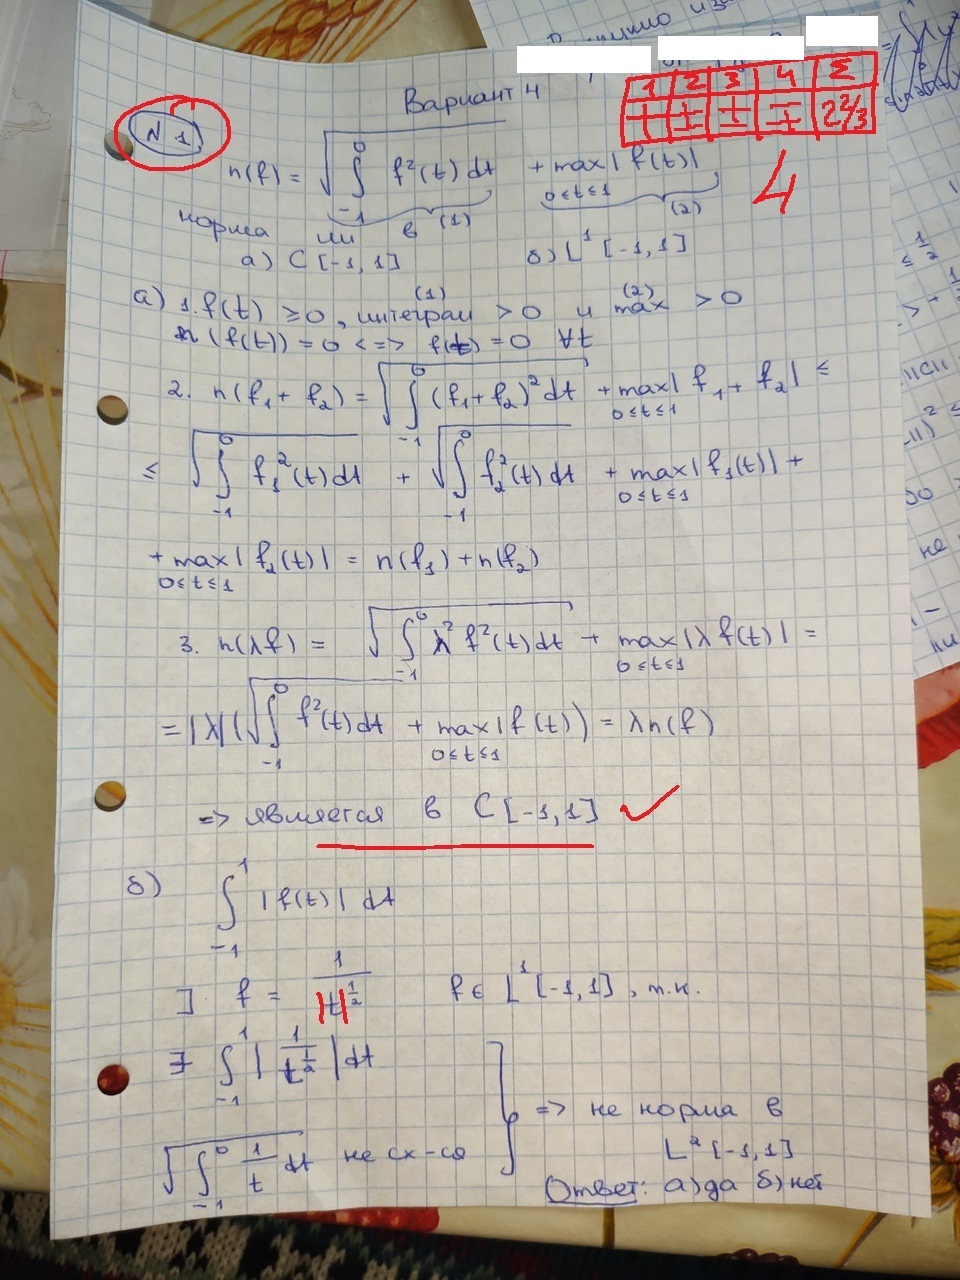 Вариант 4
1 2 3 4 Σ
+ ± ± ∓ 2 2/3
4
N 1
n(f) = √(∫_{-1}^{0} f²(t) dt) + max_{0≤t≤1} |f(t)|
(1) (2)
норма ли в
а) C[-1,1] б) L¹[-1,1]
а) 1. f(t) ≥ 0, интеграл (1) > 0 и max (2) > 0
n(f(t)) = 0 <=> f(t) = 0 ∀t
2. n(f₁ + f₂) = √(∫_{-1}^{0} (f₁+f₂)² dt) + max_{0≤t≤1} |f₁ + f₂| ≤
≤ √(∫_{-1}^{0} f₁²(t) dt) + √(∫_{-1}^{0} f₂²(t) dt) + max_{0≤t≤1} |f₁(t)| +
+ max_{0≤t≤1} |f₂(t)| = n(f₁) + n(f₂)
3. n(λf) = √(∫_{-1}^{0} λ² f²(t) dt) + max_{0≤t≤1} |λ f(t)| =
= |λ| (√(∫_{-1}^{0} f²(t) dt) + max_{0≤t≤1} |f(t)|) = λn(f)
=> является в C[-1,1] ✓
б) ∫_{-1}^{1} |f(t)| dt
]. f = 1/|t|^{1/2} f ∈ L¹[-1,1], т.к.
∃ ∫_{-1}^{1} |1/t^{1/2}| dt
=> не норма в
√(∫_{-1}^{0} 1/t dt) не сх-ся
L²[-1,1]
Ответ: а) да б) нет